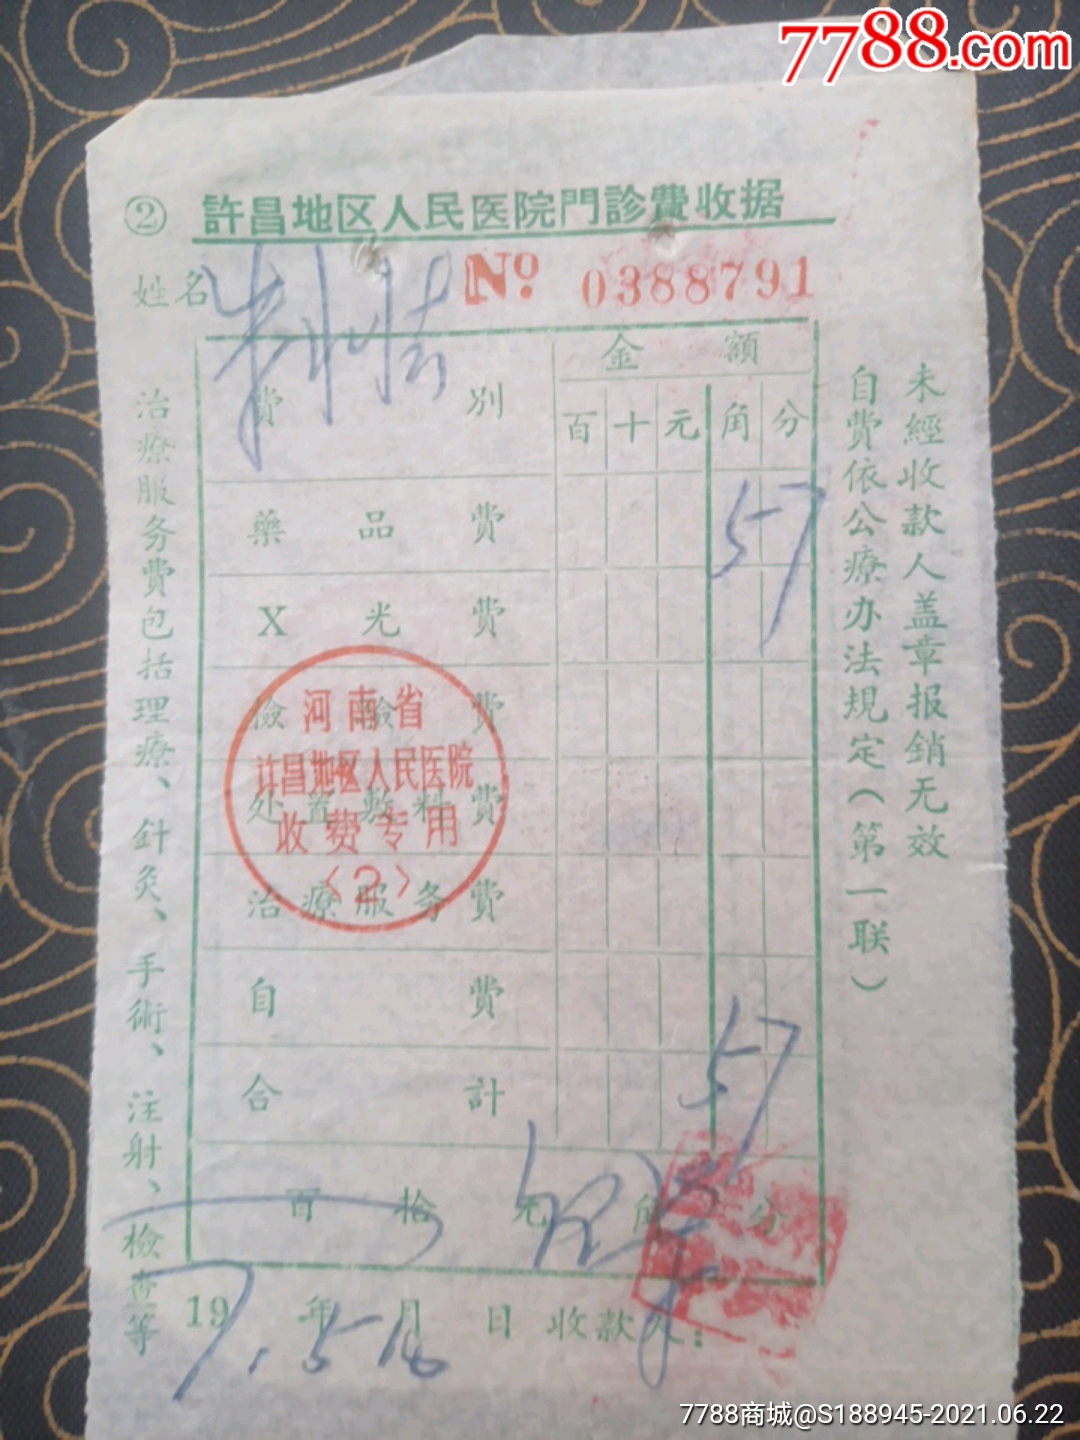 7788.com
② 許昌地区人民医院門診費收据
姓名
№ 0388791
費別 金額
百 十 元 角 分
藥品費 57
X光費
檢驗費
处置敷料費
治療服务費
自費
合計 57
百 拾 元 角 分
19 年 月 日 收款人:
治療服务費包括理療、針灸、手術、注射、檢查等
未經收款人盖章报銷无效
自費依公療办法規定(第一联)
河南省
许昌地区人民医院
收费专用
〈2〉
7788商城@S188945-2021.06.22